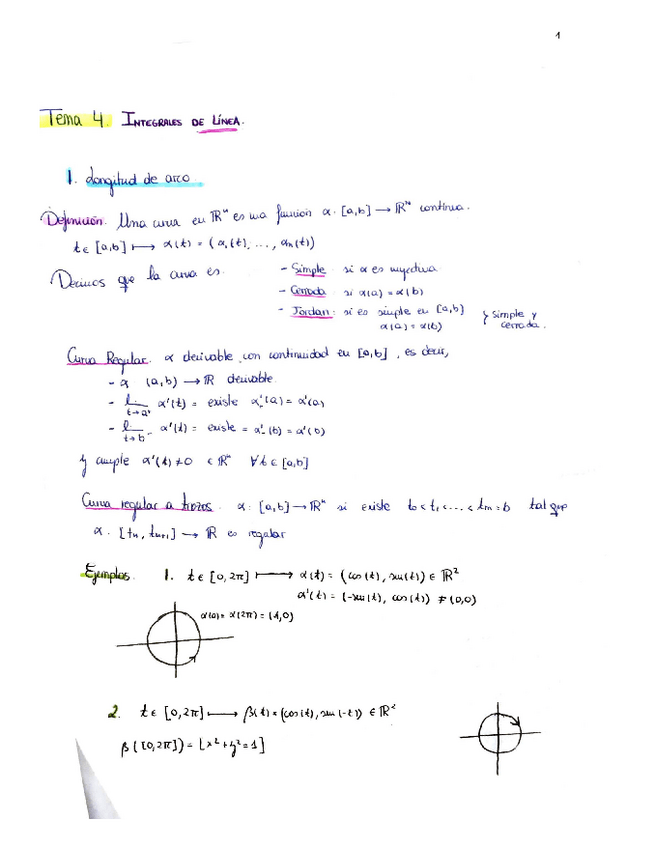 1
Tema 4. INTEGRALES DE LÍNEA.
1. Longitud de arco
Definición. Una curva en ℝⁿ es una función α: [a,b] → ℝⁿ continua.
t ∈ [a,b] ⟼ α(t) = (α₁(t), ..., αₙ(t))
Decimos que la curva es.
- Simple si α es inyectiva.
- Cerrada si α(a) = α(b)
- Jordan: si es simple en [a,b) α(a) = α(b) } simple y cerrada.
Curva Regular. α derivable con continuidad en [a,b], es decir,
- α (a,b) → ℝ derivable.
- lim t→a⁺ α'(t) = existe α'(a) = α'(a)
- lim t→b⁻ α'(t) = existe = α'₋(b) = α'(b)
y cumple α'(t) ≠ 0 ∈ ℝⁿ ∀t ∈ [a,b]
Curva regular a trozos. α: [a,b] → ℝⁿ si existe t₀ < t₁ < ... < tₘ = b tal que
α. [tₙ, tₙ₊₁] → ℝ es regular
Ejemplos. 1. t ∈ [0, 2π] ⟼ α(t) = (cos(t), sen(t)) ∈ ℝ²
α'(t) = (-sen(t), cos(t)) ≠ (0,0)
α(0) = α(2π) = (1,0)
2. t ∈ [0, 2π] ⟼ β(t) = (cos(t), sen(-t)) ∈ ℝ²
β([0,2π]) = [x² + y² = 1]